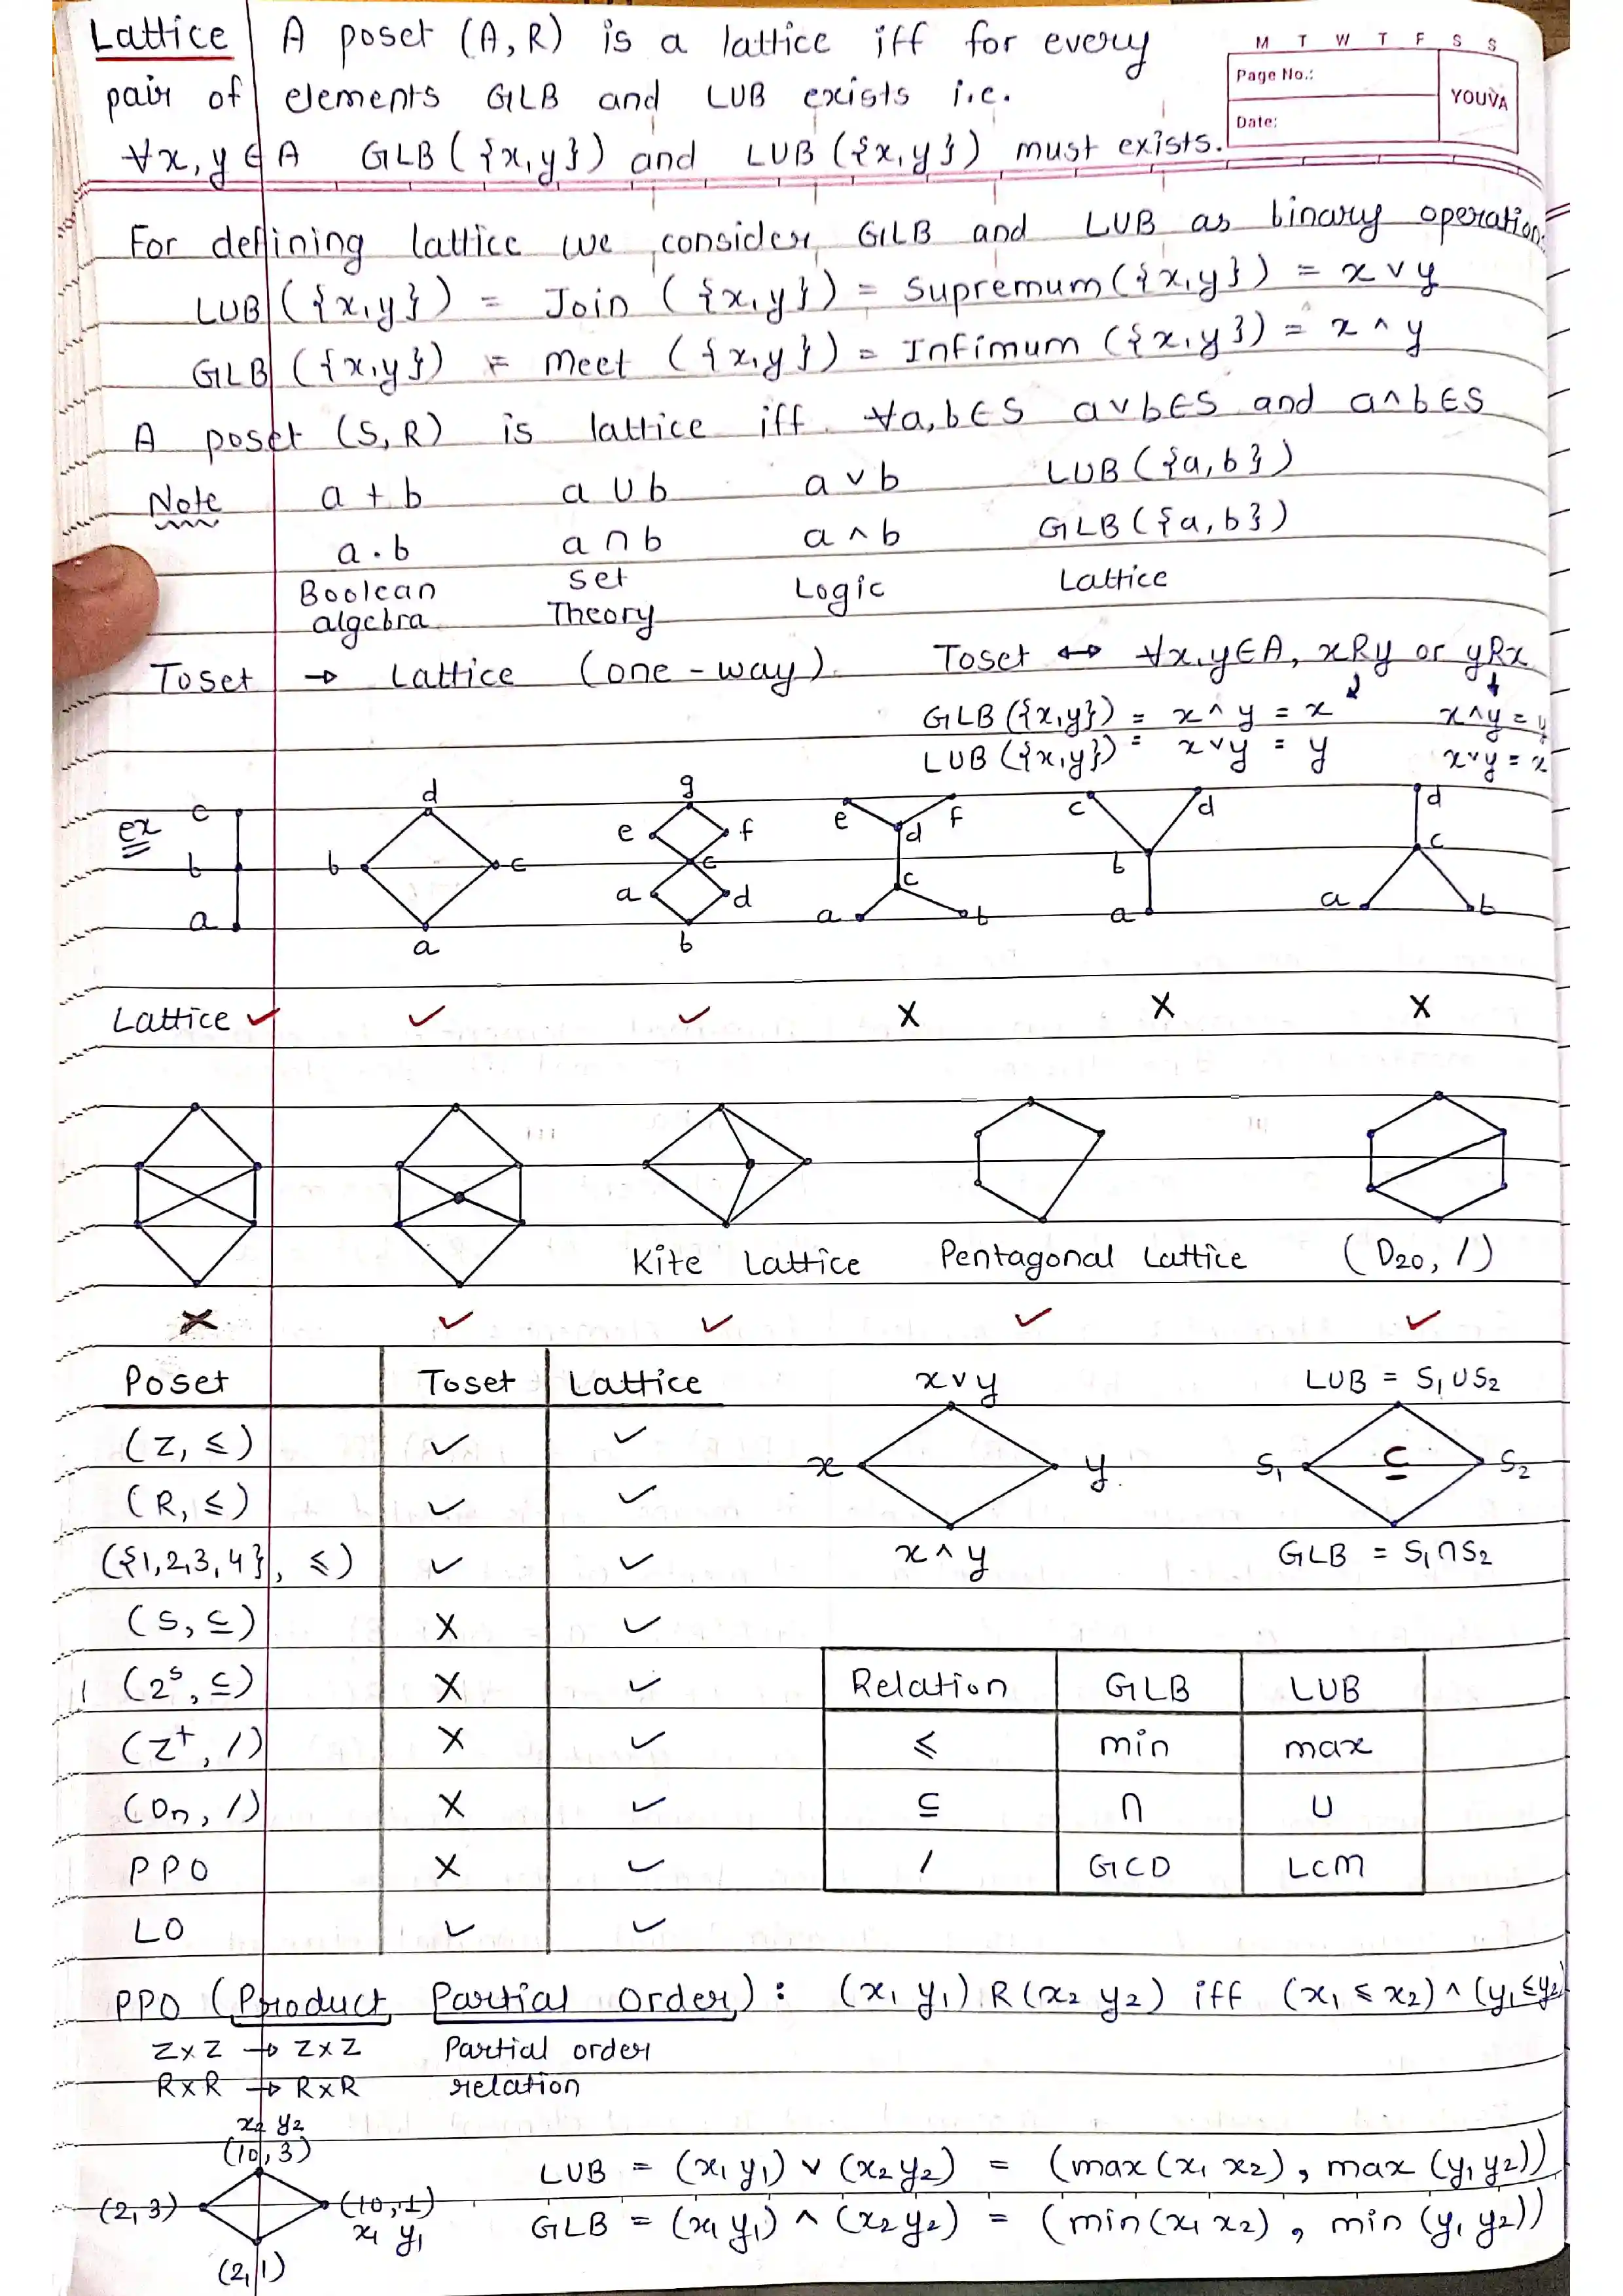 Lattice A poset (A, R) is a lattice iff for every
M T W T F S S
Page No.:
YOUVA
Date:
pair of elements GLB and LUB exists i.e.
∀x, y ∈ A GLB ({x,y}) and LUB ({x,y}) must exists.
For defining lattice we consider GLB and LUB as binary operation.
LUB ({x,y}) = Join ({x,y}) = Supremum ({x,y}) = x ∨ y
GLB ({x,y}) = Meet ({x,y}) = Infimum ({x,y}) = x ∧ y
A poset (S, R) is lattice iff ∀a,b∈S a∨b∈S and a∧b∈S
Note a + b a ∪ b a ∨ b LUB ({a,b})
a . b a ∩ b a ∧ b GLB ({a,b})
Boolean algebra Set Theory Logic Lattice
Toset → Lattice (one-way). Toset ↔ ∀x,y∈A, xRy or yRx
GLB ({x,y}) = x ∧ y = x x∧y = y
LUB ({x,y}) = x∨y = y x∨y = x
ex
c b a
d b c a
g e f c a d b
e f d c a b
c d b a
d c a b
Lattice ✓ ✓ ✓ X X X
Kite Lattice Pentagonal Lattice (D20, /)
X ✓ ✓ ✓ ✓
Poset Toset Lattice
(Z, ≤) ✓ ✓
(R, ≤) ✓ ✓
({1,2,3,4}, ≤) ✓ ✓
(S, ⊆) X ✓
(2ˢ, ⊆) X ✓
(Z⁺, /) X ✓
(Dn, /) X ✓
PPO X ✓
LO ✓ ✓
x∨y
x y
x ∧ y
LUB = S₁∪S₂
S₁ ⊆ S₂
GLB = S₁∩S₂
Relation GLB LUB
≤ min max
⊆ ∩ ∪
/ GCD LCM
PPO (Product Partial Order) : (x₁ y₁) R (x₂ y₂) iff (x₁ ≤ x₂) ∧ (y₁ ≤ y₂)
Z×Z → Z×Z Partial order
R×R → R×R relation
x₂ y₂
(10,3)
(2,3) (10,1)
x₁ y₁
(2,1)
LUB = (x₁ y₁) ∨ (x₂ y₂) = (max (x₁ x₂), max (y₁ y₂))
GLB = (x₁ y₁) ∧ (x₂ y₂) = (min (x₁ x₂), min (y₁ y₂))